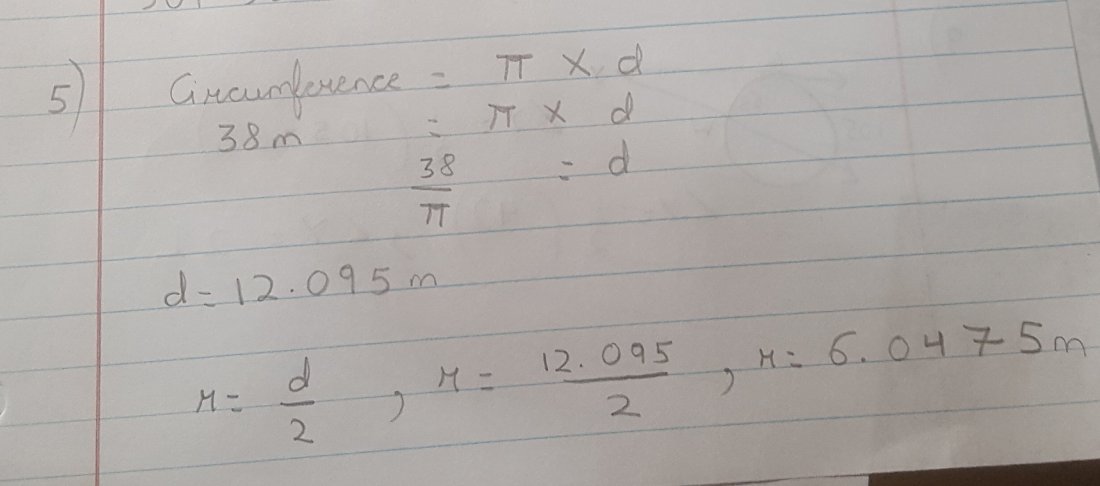 5) Circumference = π × d
38m = π × d
38/π = d
d = 12.095 m
r = d/2 , r = 12.095/2 , r = 6.0475m